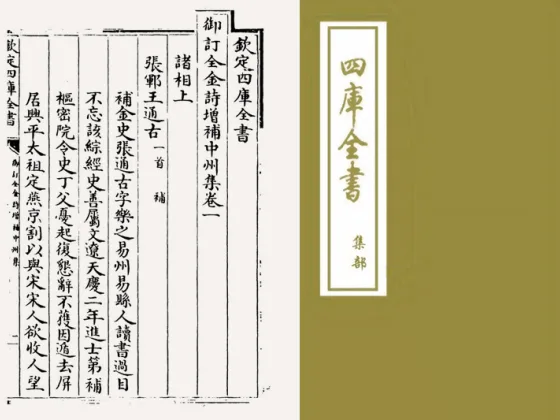 欽定四庫全書
御訂全金詩增補中州集卷一
諸相上
張鄆王通古一首 補
補金史張通古字樂之易州易縣人讀書過目
不忘該綜經史善屬文遼天慶二年進士第補
樞密院令史丁父憂起復懇辭不獲因遁去屏
居興平太祖定燕京割以與宋宋人欲收人望
欽定四庫全書
御訂全金詩增補中州集
四庫全書
集部